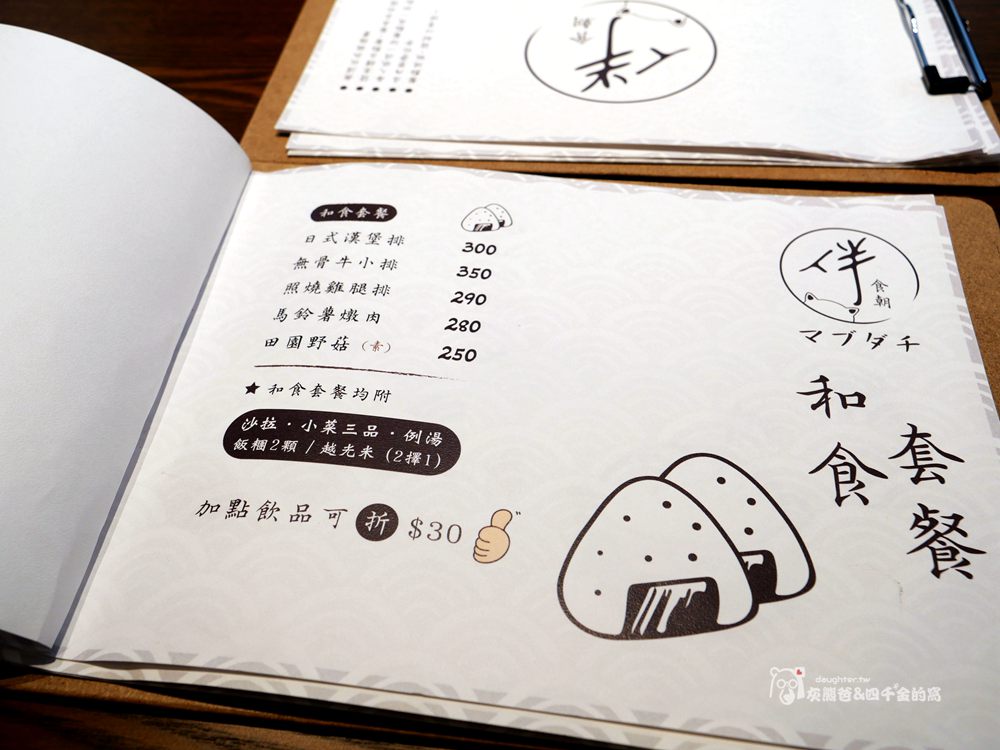 伴
食朝
和食套餐
日式漢堡排 300
無骨牛小排 350
照燒雞腿排 290
馬鈴薯燉肉 280
田園野菇 (素) 250
★ 和食套餐均附
沙拉・小菜三品・例湯
飯糰2顆 / 越光米 (2擇1)
加點飲品可折 $30
伴
食朝
マブダチ
和食
套餐
daughter.tw
灰熊爸&四千金的窩